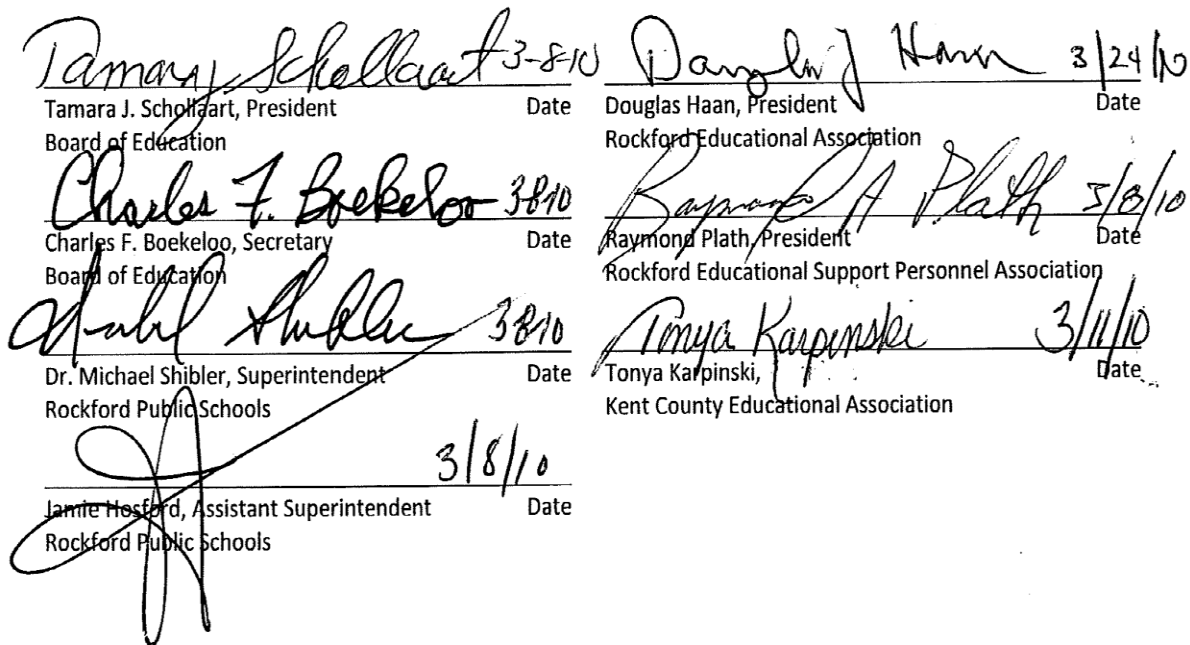 Tamara J. Schollaart 3-8-10
Tamara J. Schollaart, President Date
Board of Education
Charles F. Boekeloo 3810
Charles F. Boekeloo, Secretary Date
Board of Education
3810
Dr. Michael Shibler, Superintendent Date
Rockford Public Schools
3/8/10
Jamie Hosford, Assistant Superintendent Date
Rockford Public Schools
Douglas J Haan 3/24/10
Douglas Haan, President Date
Rockford Educational Association
Raymond A Plath 3/8/10
Raymond Plath, President Date
Rockford Educational Support Personnel Association
Tonya Karpinski 3/11/10
Tonya Karpinski, Date
Kent County Educational Association